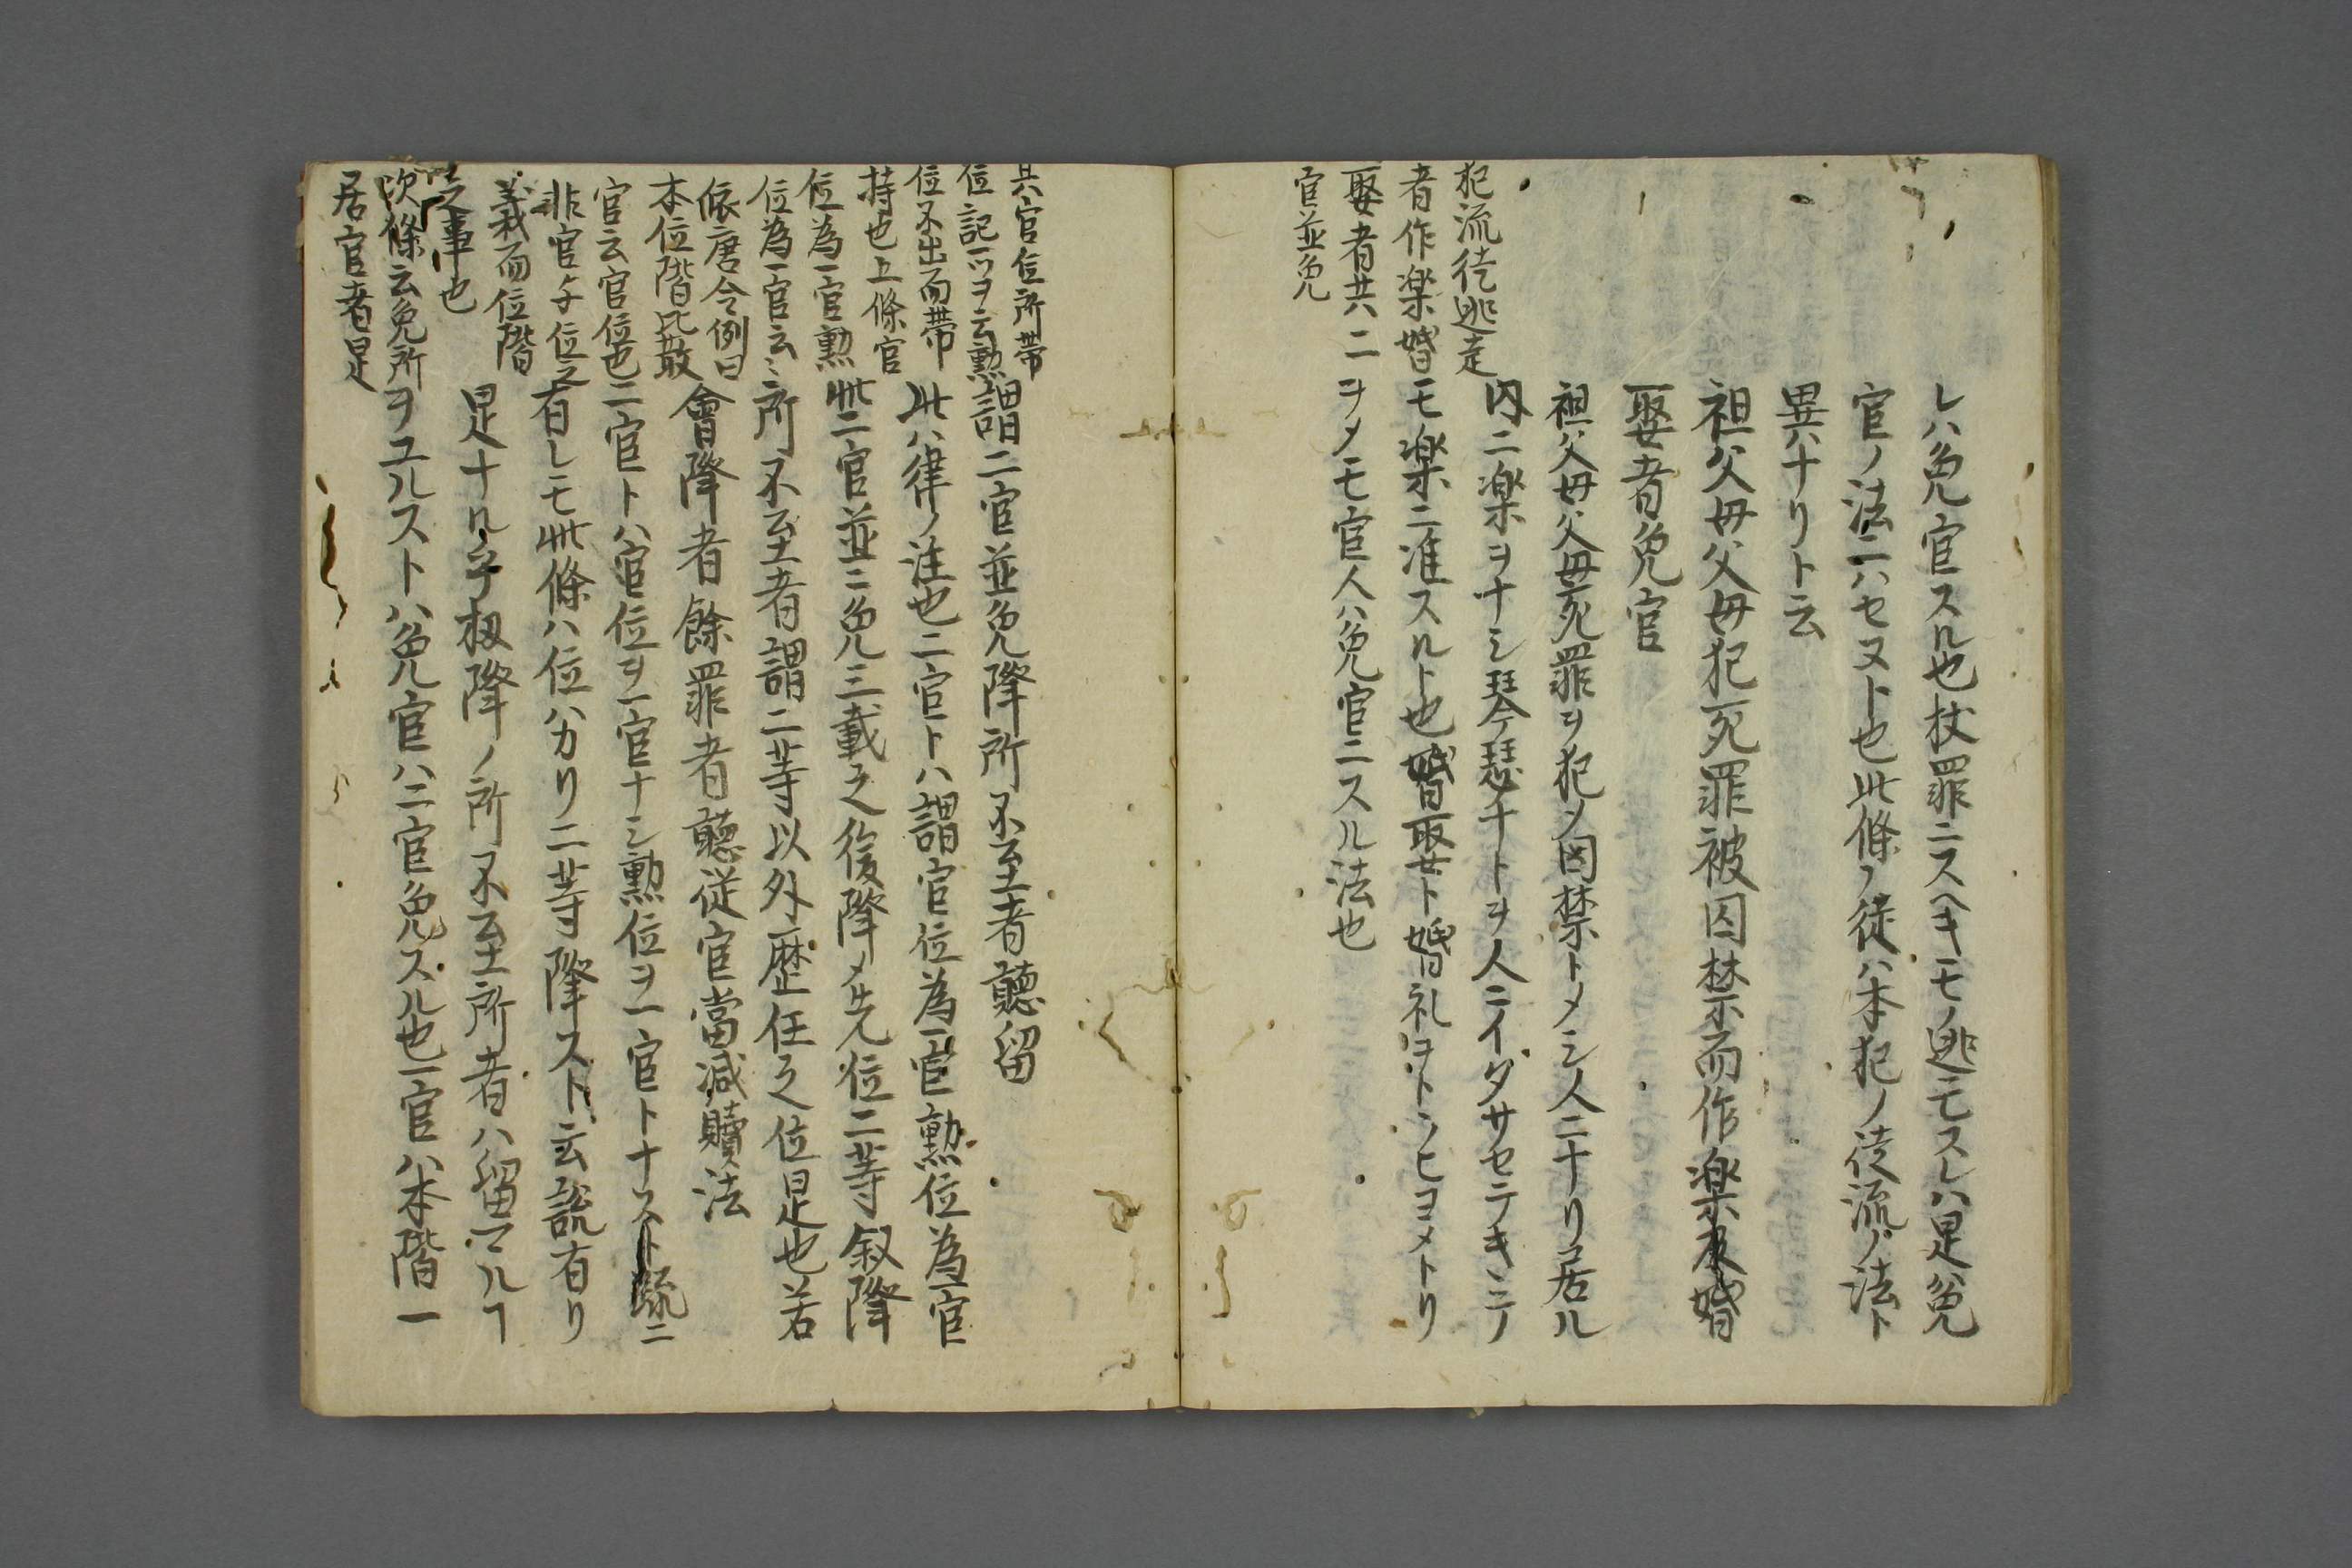 レハ免官スル也杖罪ニスヘキモノ逃亡スレハ是免
官ノ法ニハセヌト也此條ノ徒ハ本犯ノ徒流ノ法ト
異ハナリト云
祖父母父母犯死罪被囚禁而作楽及婚
娶者免官
祖父母父母死罪ヲ犯メ囚禁トメシ人ニナリ居ル
内ニ楽ヲナシ琴瑟ナトヲ人ニイダサセテキキシノ
モ楽ニ准スルト也婚娶ト婚礼ヲトヽヒヨメトリ
ヲメモ官人ハ免官ニスル法也
犯流徒逃走
者作楽婚
娶者共二
官並免
謂二官並免降所不至者聽留
此ハ律ノ注也二官トハ謂官位為一官勲位為一官
此二官並ニ免三載之後降メ先位二等叙降
所不至者謂二等以外歴任之位是也若
會降者餘罪者聽従官當減贖法
二官トハ官位ヲ一官ナシ勲位ヲ一官トナスト疏ニ
有レモ此條ハ位ハカリ二等降スト云説有リ
是ナル乎扨降ノ所不至所者ハ留マルヿ
ヲユルストハ免官ハ二官免スル也一官ハ本階一
其官位所帯
位記一ツヲ云勲
位不出而帯
持也上條官
位為一官勲
位為一官云〻
依唐令例曰
本位階比散
官云官位也
非官与位之
義而位階
之事也
次條云免所
居官者是